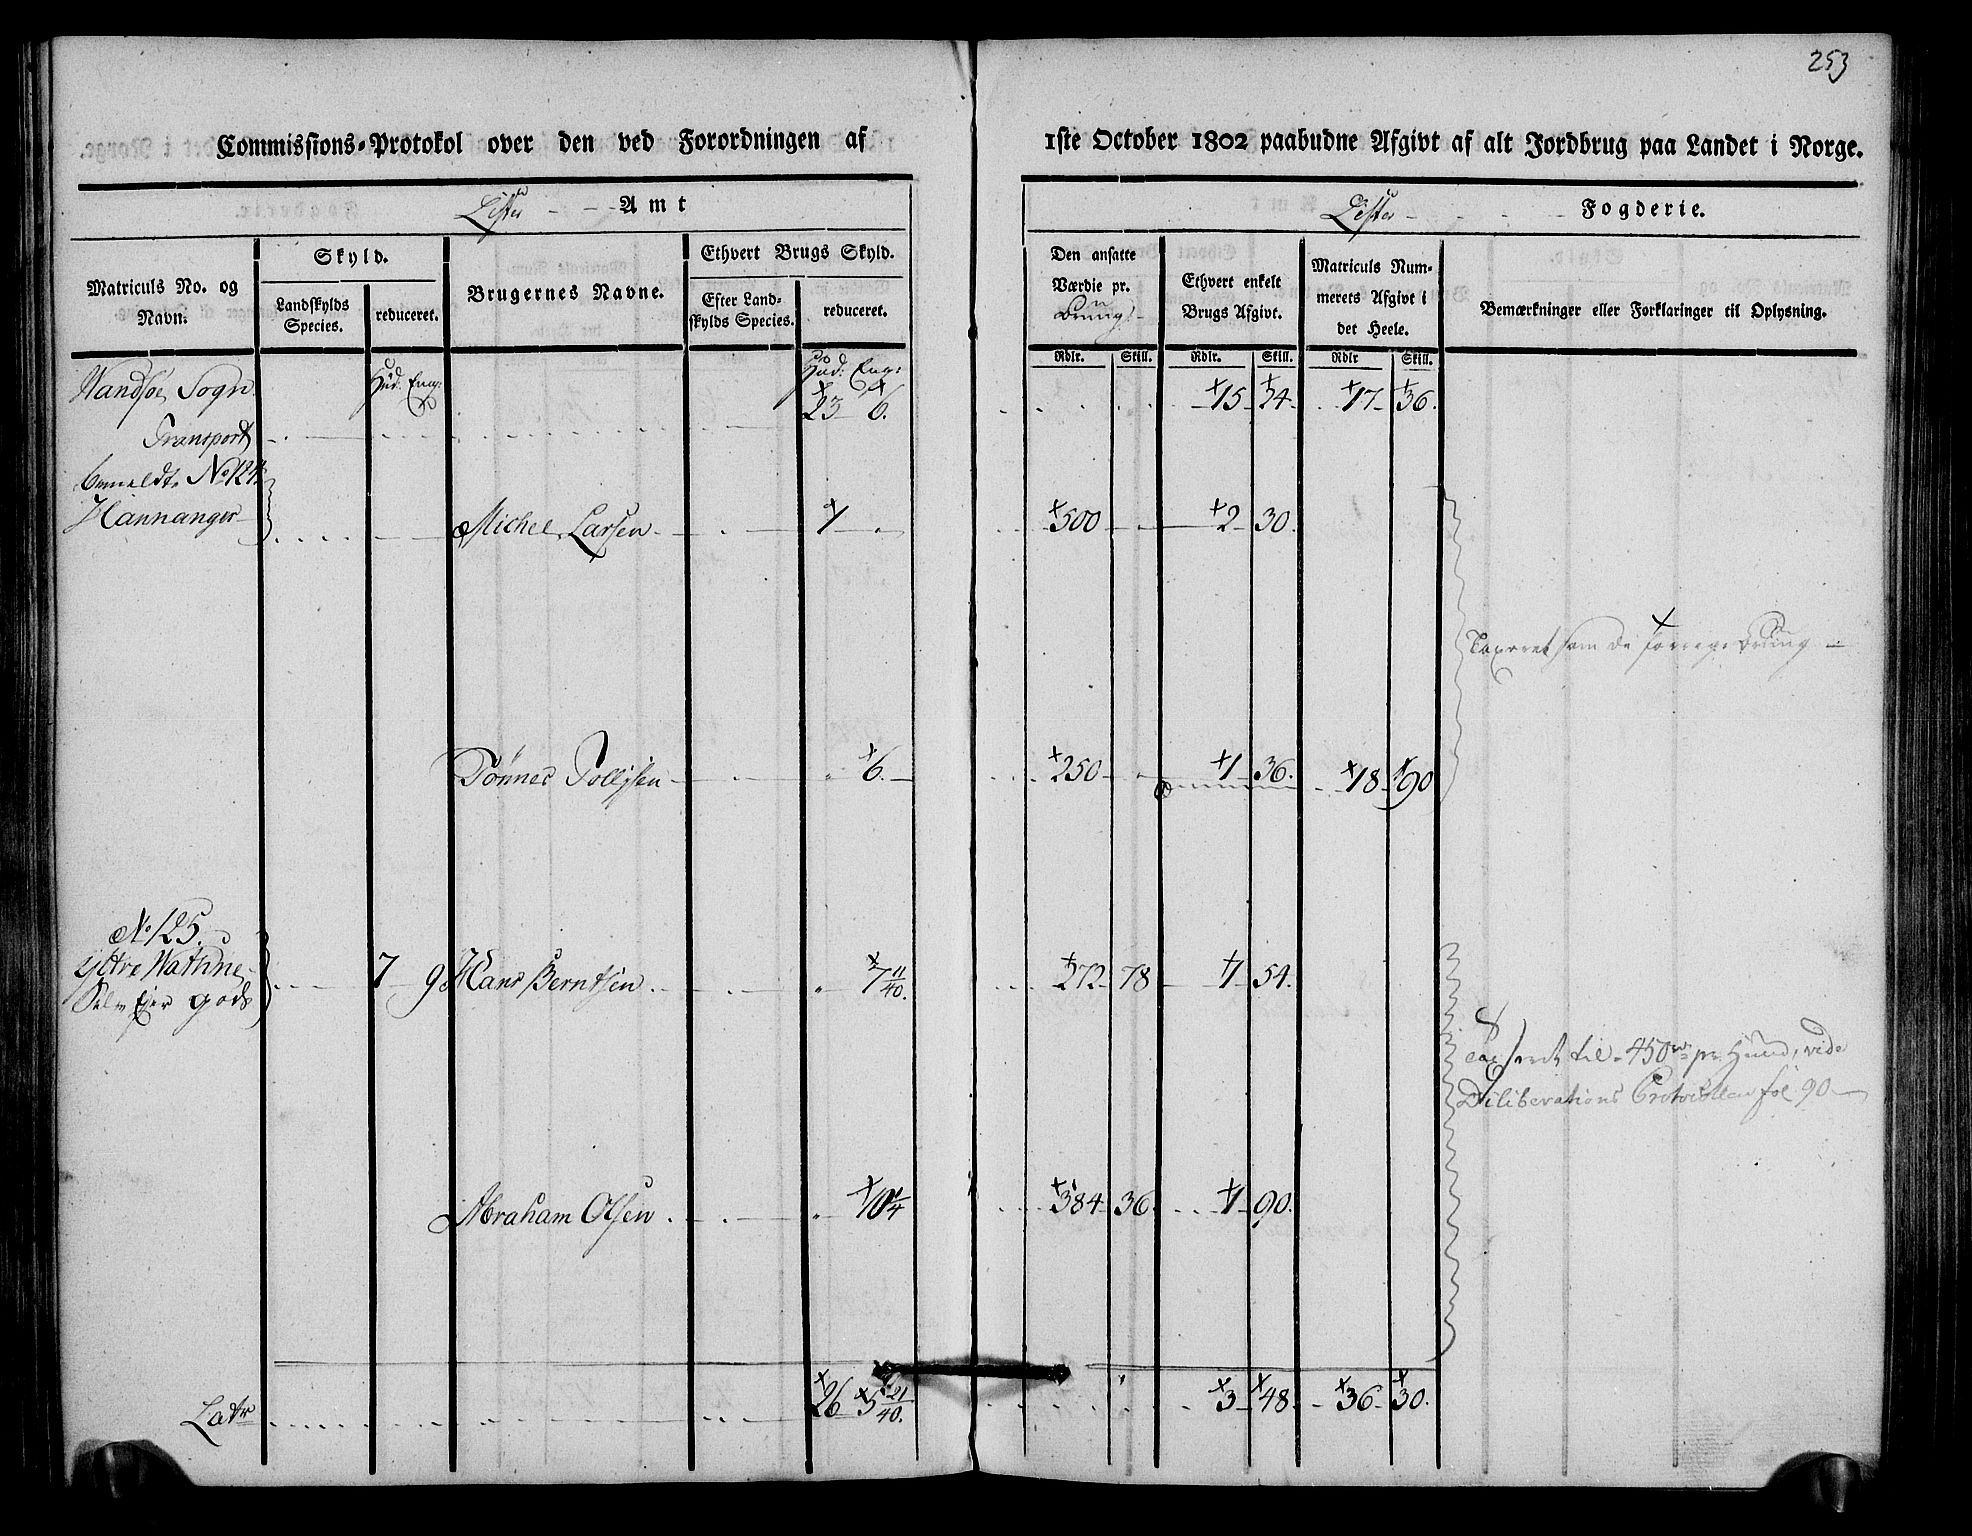 253
Commissions-Protokol over den ved Forordningen af 1ste October 1802 paabudne Afgivt af alt Jordbrug paa Landet i Norge.
Lister Amt
Lister Fogderie.
Matriculs No. og Navn.
Skyld.
Landskylds Species.
reduceret.
Brugernes Navne.
Ethvert Brugs Skyld.
Efter Landskylds Species.
reduceret.
Den ansatte Værdie pr. Brug
Ethvert enkelt Brugs Afgivt.
Matriculs Nummerets Afgivt i det Heele.
Bemærkninger eller Forklaringer til Oplysning.
Rdlr. Skill. Rdlr. Skill. Rdlr Skill.
Wandsøe Sogn Hud: Eng: Hud: Eng:
Transport 23 6. 15 24 17 36.
bemeldte No 124
Hannanger Michel Larsen 1 500 2 30.
Taxeret som de forrige Brug
Tønnes Tollisen 6. 250 1 36. 18 90
No 125.
Ytre Wathne
Selv Ejer gods 7 9 Hans Berntsen 7 11/40. 272 78 1 54.
Taxeret til 450 rd pr Huud, vide
Deliberations Protocollen fol 90
Abraham Olsen 10 1/4 384 36 1 90.
Latr 26 5 21/40. 3 48 36 30.